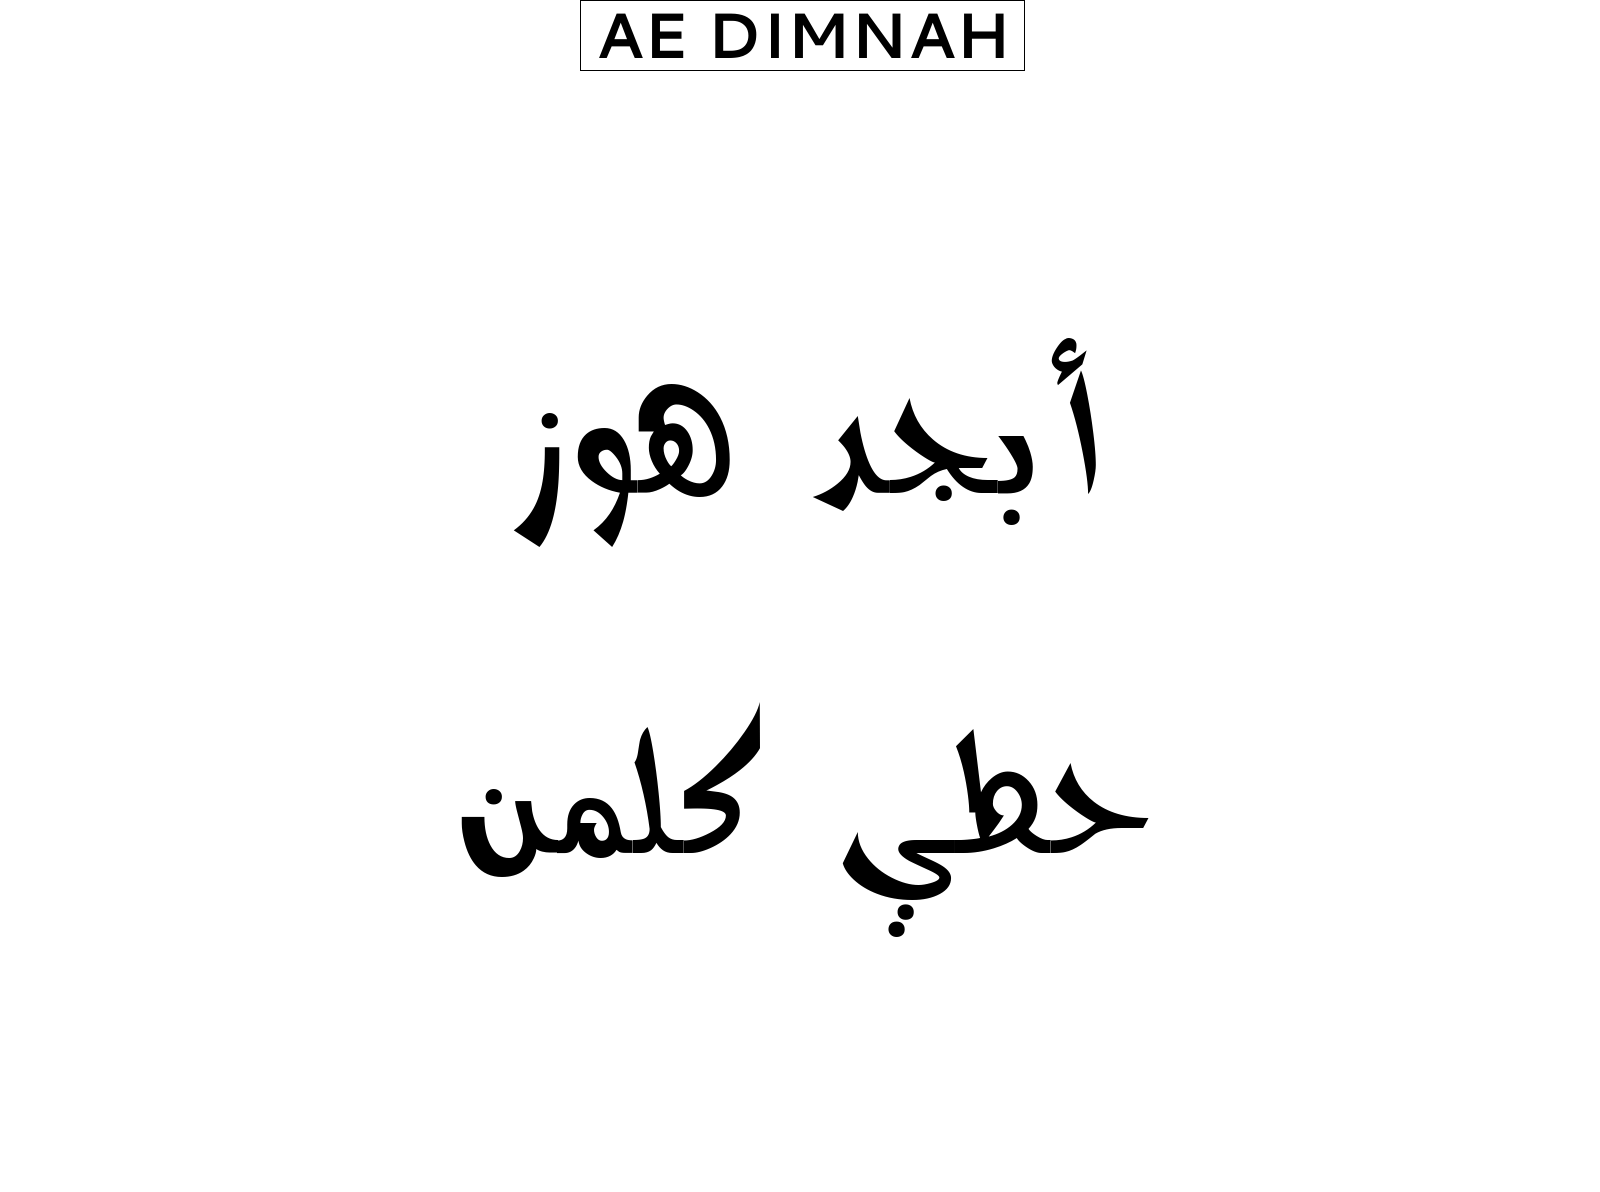 AE DIMNAH
أبجد هوز
حطي كلمن